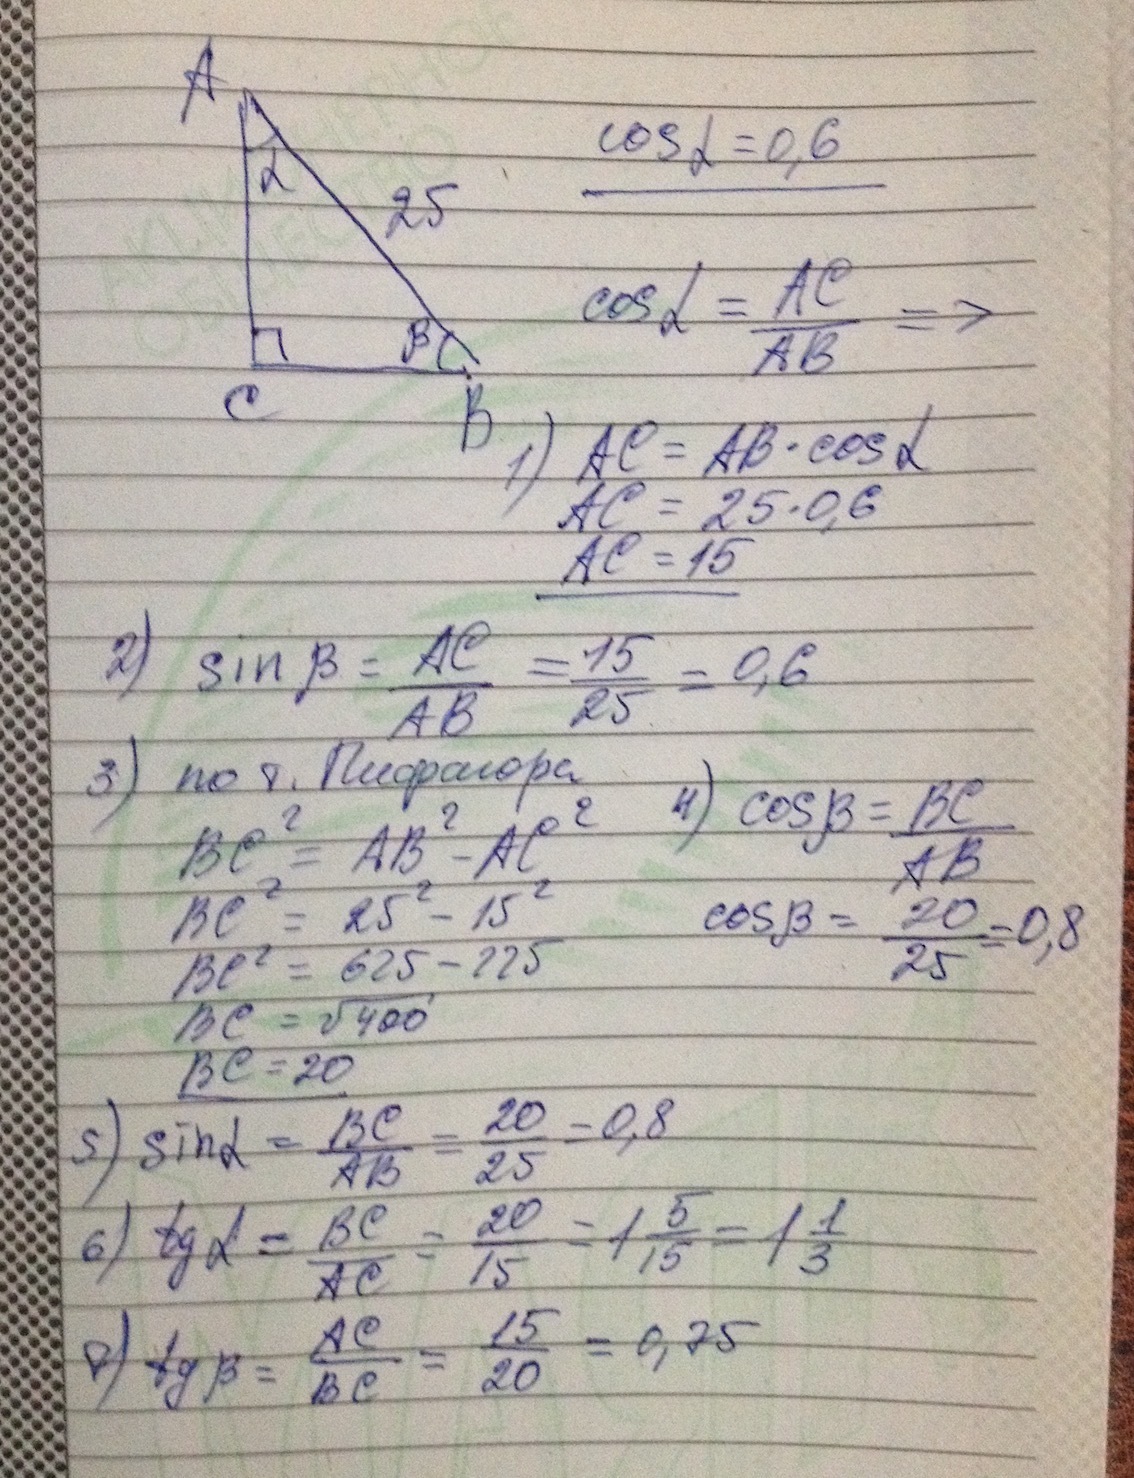 A
α
25
β
C
B
cosα = 0,6
cosα = AC/AB =>
1) AC = AB · cosα
AC = 25 · 0,6
AC = 15
2) sin β = AC/AB = 15/25 = 0,6
3) по т. Пифагора
BC² = AB² - AC²
BC² = 25² - 15²
BC² = 625 - 225
BC = √400
BC = 20
4) cosβ = BC/AB
cosβ = 20/25 = 0,8
5) sinα = BC/AB = 20/25 = 0,8
6) tgα = BC/AC = 20/15 = 1 5/15 = 1 1/3
7) tgβ = AC/BC = 15/20 = 0,75